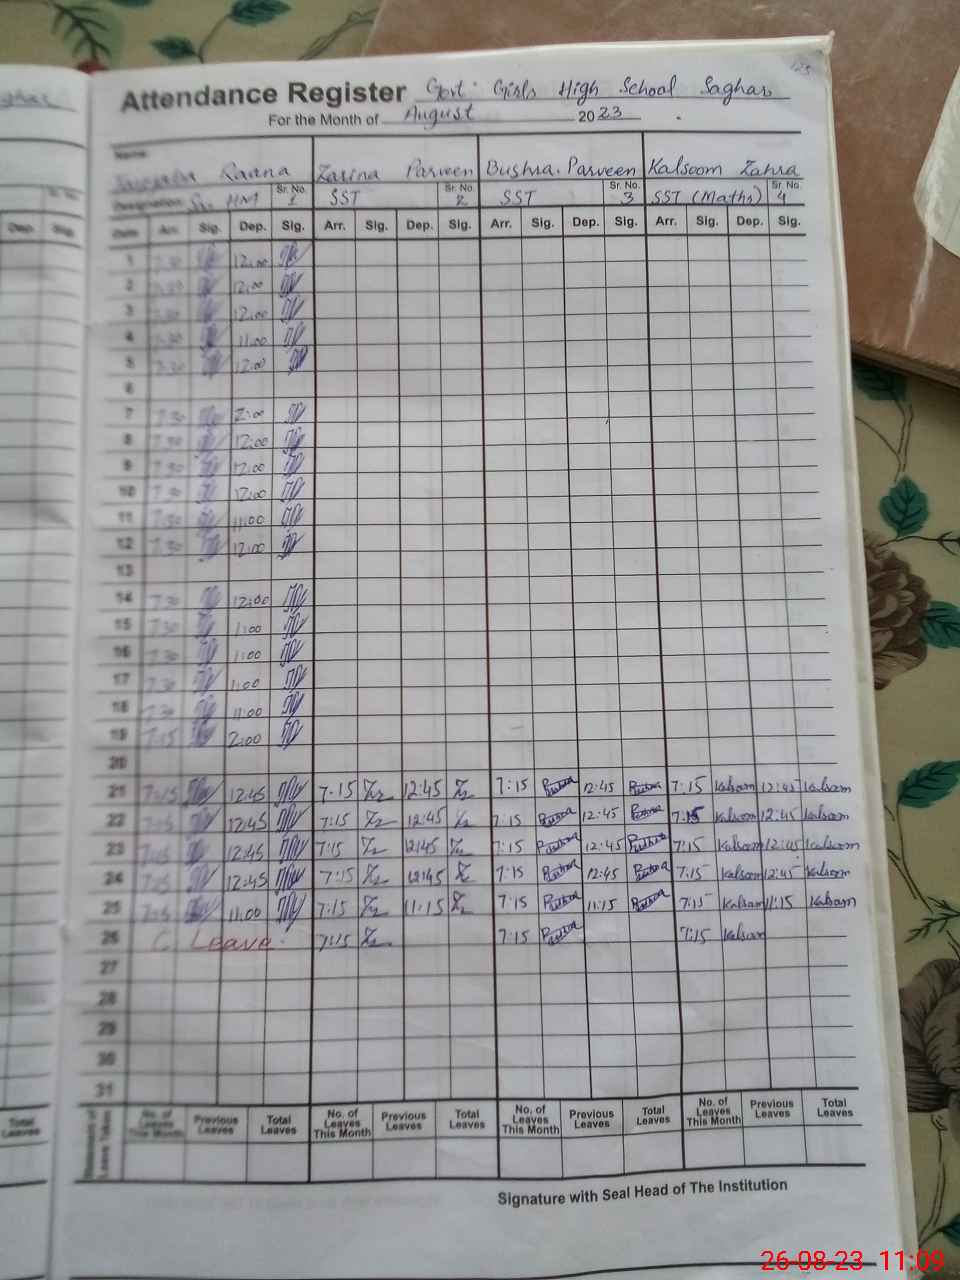 Attendance Register Govt. Girls High School Saghar
For the Month of August 2023
Name Raana Zarina Parveen Bushra Parveen Kalsoom Zahra
Designation Sr. HM Sr. No. 1 SST Sr. No. 2 SST Sr. No. 3 SST (Maths) Sr. No. 4
Date Arr. Sig. Dep. Sig. Arr. Sig. Dep. Sig. Arr. Sig. Dep. Sig. Arr. Sig. Dep. Sig.
1 7:30 12:00
2 7:30 12:00
3 7:30 12:00
4 7:30 11:00
5 7:30 12:00
6
7 7:30 2:00
8 7:30 12:00
9 7:30 12:00
10 7:30 12:00
11 7:30 11:00
12 7:30 12:00
13
14 7:30 12:00
15 7:30 1:00
16 7:30 1:00
17 7:30 1:00
18 7:30 11:00
19 7:15 2:00
20
21 7:15 12:45 7:15 12:45 7:15 Bushra 12:45 Bushra 7:15 Kalsoom 12:45 Kalsoom
22 7:15 12:45 7:15 12:45 7:15 Bushra 12:45 Bushra 7:15 Kalsoom 12:45 Kalsoom
23 7:15 12:45 7:15 12:45 7:15 Bushra 12:45 Bushra 7:15 Kalsoom 12:45 Kalsoom
24 7:15 12:45 7:15 12:45 7:15 Bushra 12:45 Bushra 7:15 Kalsoom 12:45 Kalsoom
25 7:15 11:00 7:15 11:15 7:15 Bushra 11:15 Bushra 7:15 Kalsoom 11:15 Kalsoom
26 C. Leave. 7:15 7:15 Bushra 7:15 Kalsoom
27
28
29
30
31
No. of Leaves This Month Previous Leaves Total Leaves No. of Leaves This Month Previous Leaves Total Leaves No. of Leaves This Month Previous Leaves Total Leaves No. of Leaves This Month Previous Leaves Total Leaves
Signature with Seal Head of The Institution
26-08-23 11:09